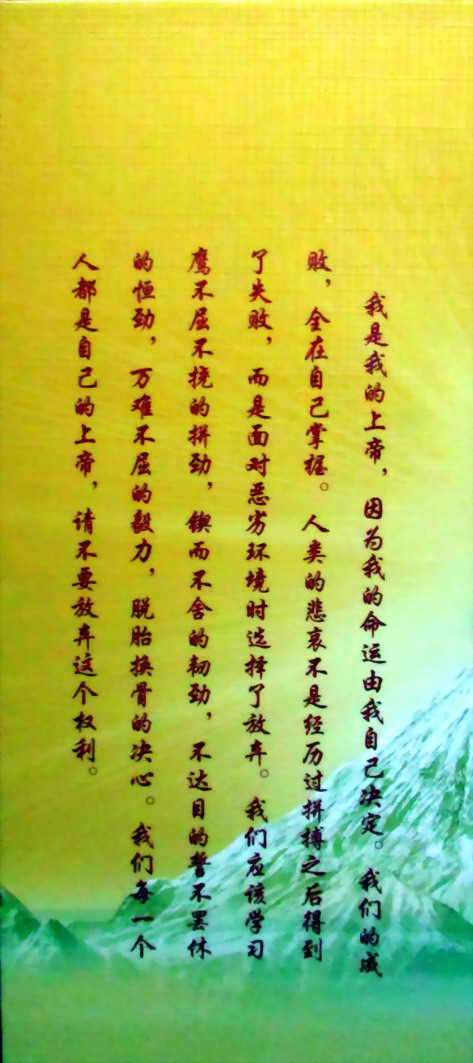 我是我的上帝，因为我的命运由我自己决定。我们的成
败，全在自己掌握。人类的悲哀不是经历过拼搏之后得到
了失败，而是面对恶劣环境时选择了放弃。我们应该学习
鹰不屈不挠的拼劲，锲而不舍的韧劲，不达目的誓不罢休
的恒劲，万难不屈的毅力，脱胎换骨的决心。我们每一个
人都是自己的上帝，请不要放弃这个权利。